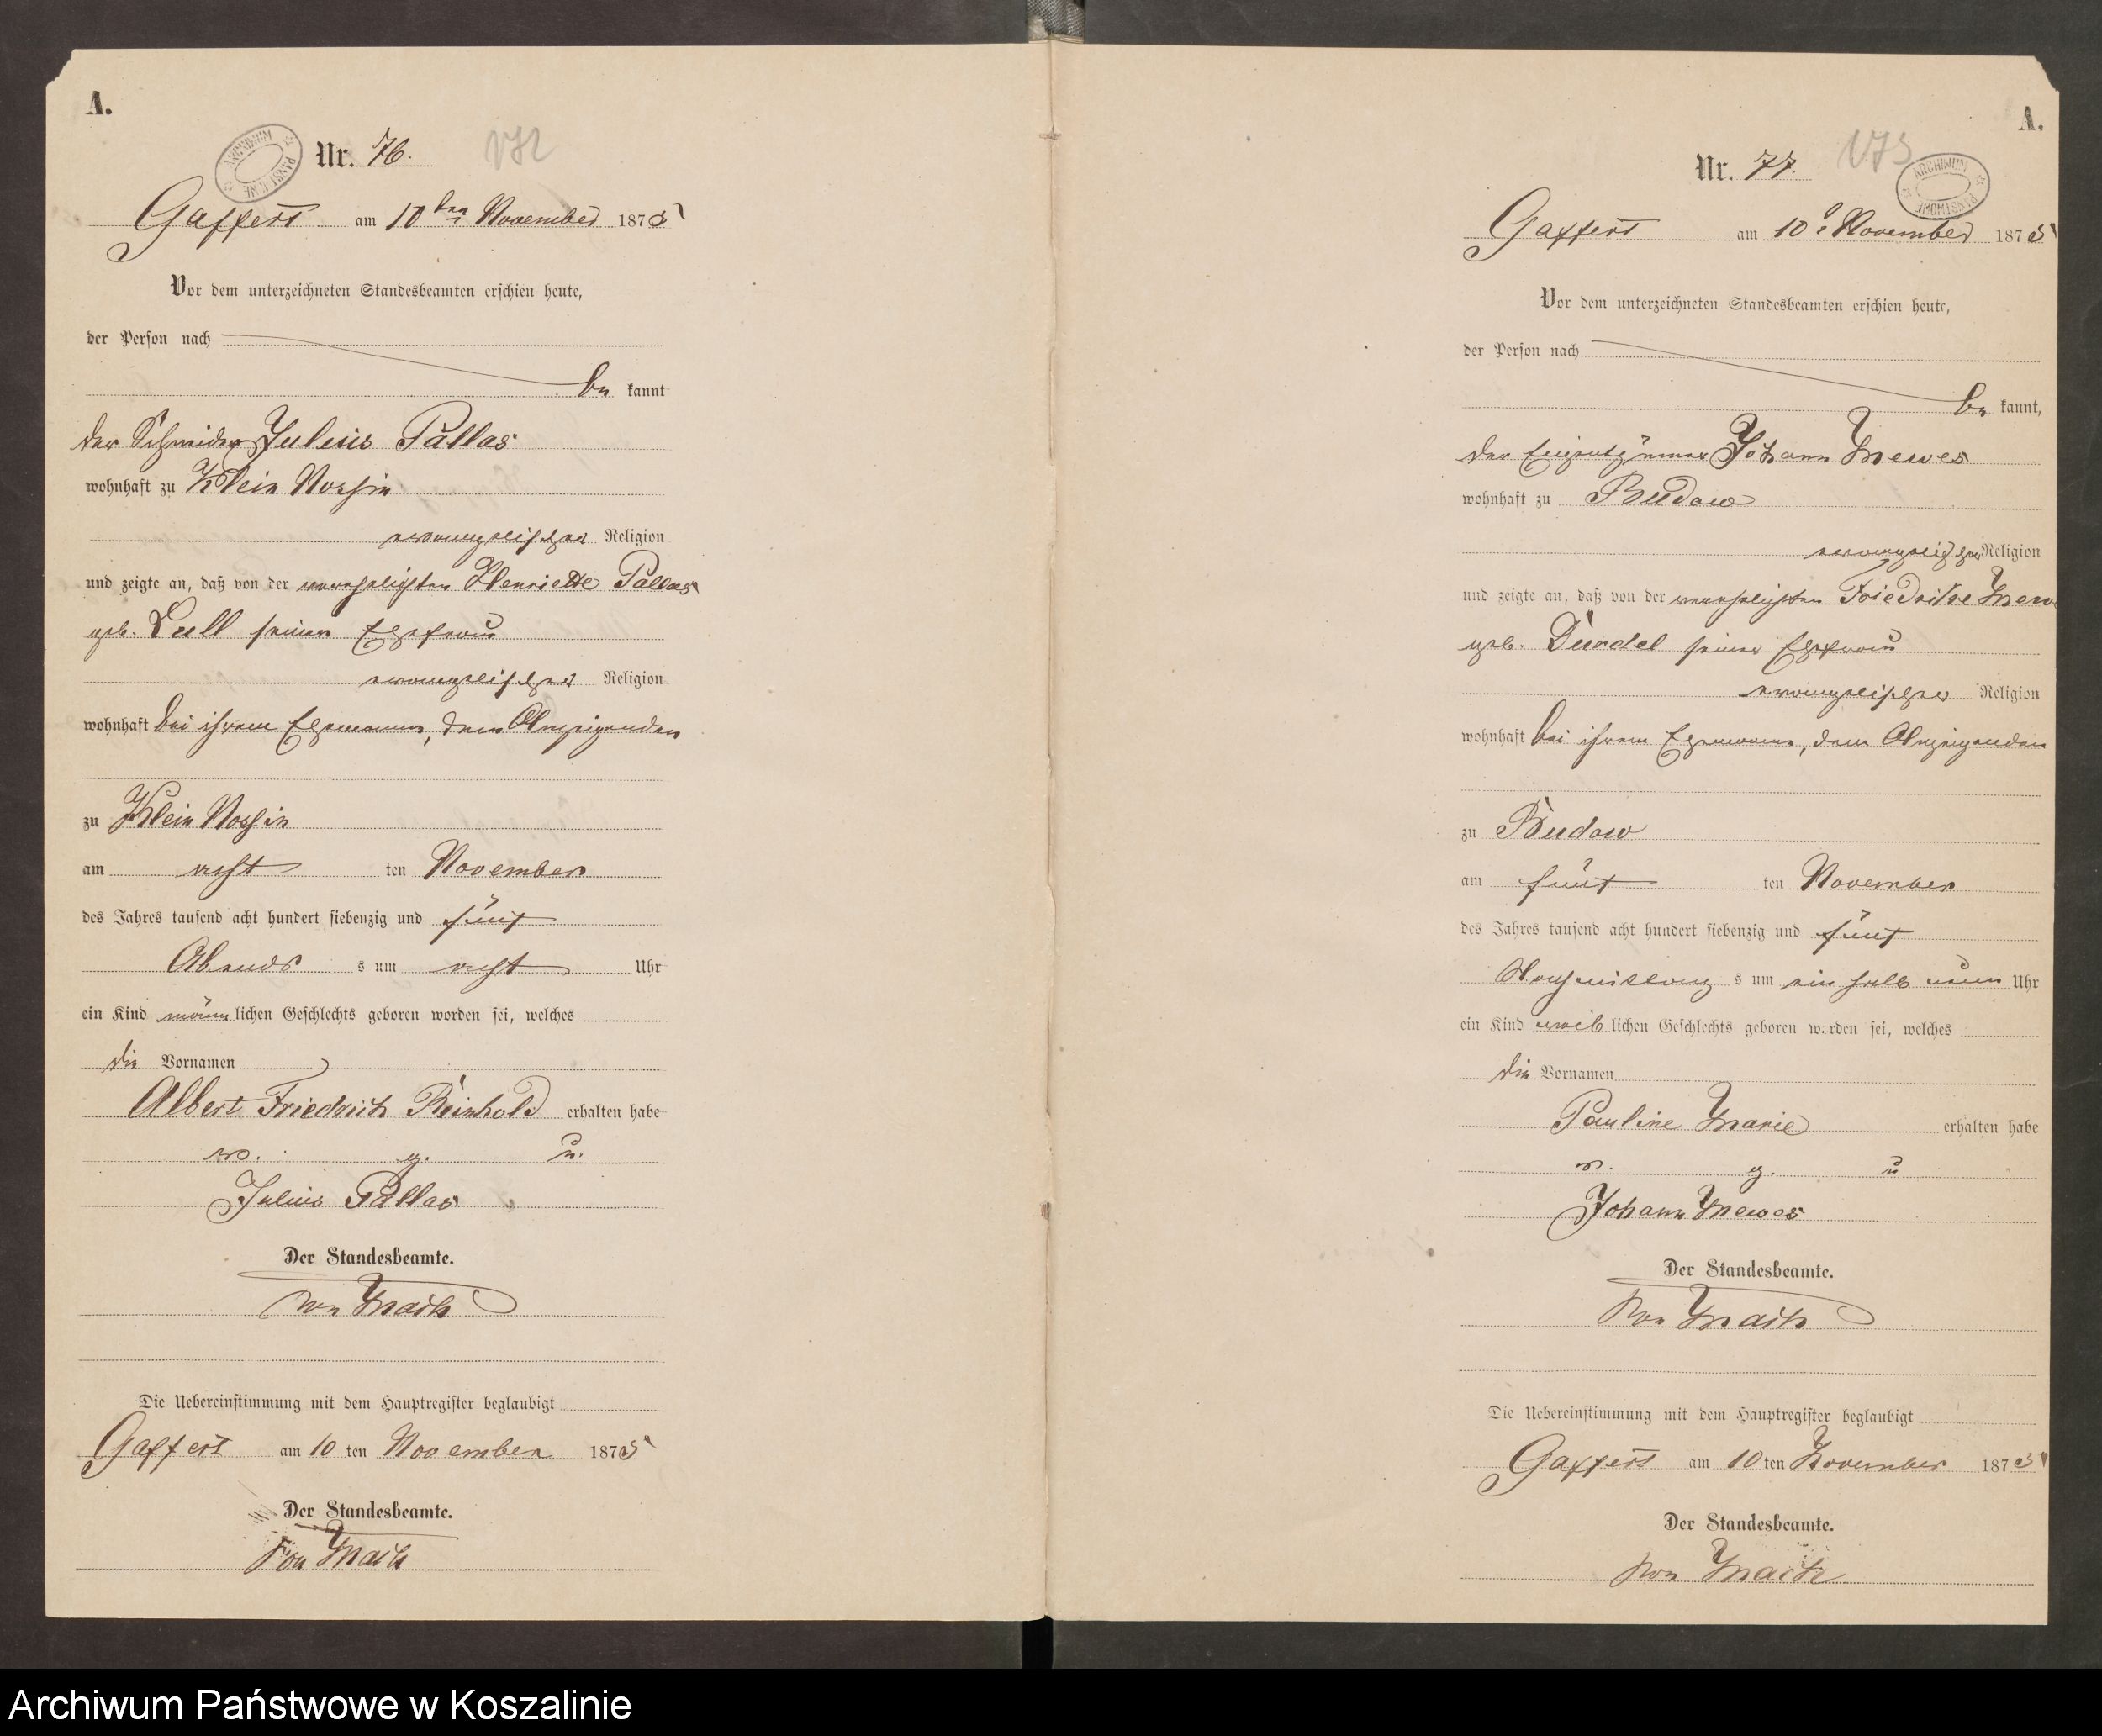 A.
ARCHIWUM PAŃSTWOWE
Nr. 76. 172
Gaffert am 10ten November 1875
Vor dem unterzeichneten Standesbeamten erschien heute,
der Person nach
be kannt
der Schneider Julius Pallas
wohnhaft zu Klein Nossin
evangelischer Religion
und zeigte an, daß von der verehelichten Henriette Pallas
geb. Lull seiner Ehefrau
evangelischer Religion
wohnhaft bei ihrem Ehemann, dem Anzeigenden
zu Klein Nossin
am acht ten November
des Jahres tausend acht hundert siebenzig und fünf
Abends s um acht Uhr
ein Kind männ lichen Geschlechts geboren worden sei, welches
die Vornamen
Albert Friedrich Reinhold erhalten habe
v. g. u.
Julius Pallas
Der Standesbeamte.
von Mach
Die Uebereinstimmung mit dem Hauptregister beglaubigt
Gaffert am 10 ten November 1875
Der Standesbeamte.
von Mach
A.
Nr. 77. 173
ARCHIWUM PAŃSTWOWE
Gaffert am 10t November 1875
Vor dem unterzeichneten Standesbeamten erschien heute,
der Person nach
be kannt,
der Eigenthümer Johann Mewes
wohnhaft zu Budow
evangelischer Religion
und zeigte an, daß von der verehelichten Friedrike Mew
geb. Dundel seiner Ehefrau
evangelischer Religion
wohnhaft bei ihrem Ehemann, dem Anzeigenden
zu Budow
am fünf ten November
des Jahres tausend acht hundert siebenzig und fünf
Nachmittag s um ein halb neun Uhr
ein Kind weib lichen Geschlechts geboren worden sei, welches
die Vornamen
Pauline Marie erhalten habe
v. g. u
Johann Mewes
Der Standesbeamte.
von Mach
Die Uebereinstimmung mit dem Hauptregister beglaubigt
Gaffert am 10 ten November 1875
Der Standesbeamte.
von Mach
Archiwum Państwowe w Koszalinie